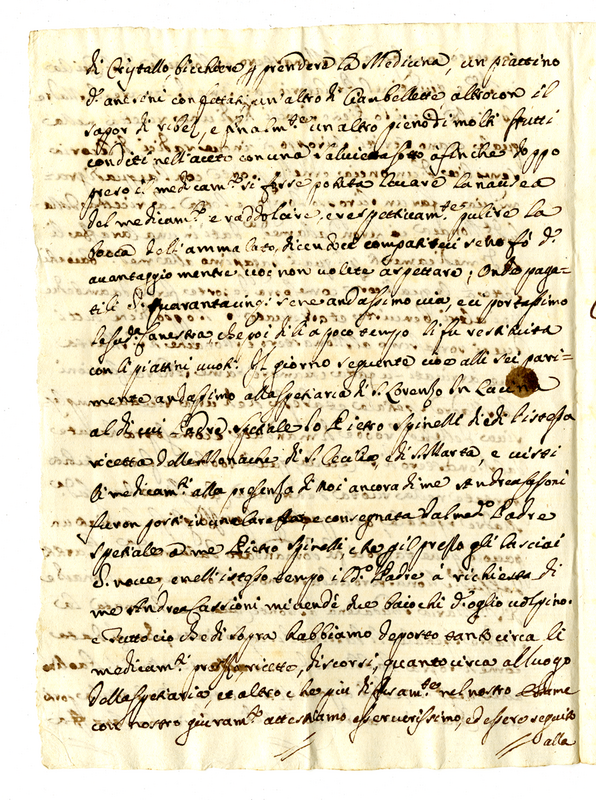 di Cristallo bicchiere p prendere la Medicina, un piattino
d. anesini confettati, un'altro di Ciambellette altro con il
sapor di ribes, e finalm.te un altro pieno di molti frutti
conditi nell'aceto con una salvietta sotto, afinche doppo
preso il medicam.to si fosse potuta levare la nausea
del medicam.to e raddolcire, e respettivam.te pulire la
bocca dell'ammalato, dicendoci compatiteci se no fò d.
avantaggio mentre voi non volete aspettare; Onde paga=
tili b. quarantauno: se ne andassimo via, e ci portassimo
la sud.a canestra che poi di lì a poco tempo li fu restituita
con li piattini vuoti. Il giorno seguente cioè alli sei pari=
mente andassimo alla spetiaria di S. Lorenzo In Lucina
al di cui Padre Spetiale Io Pietro Spinelli diedi l'istessa
ricetta delle Monache di S. Cecilia, e di S. Marta, e visti
li medicam.ti alla presenza di noi ancora di me Andrea Fassoni
furon posti in e consegnata dal med.o Padre
Spetiale a me Pietro Spinelli, che p il prezzo gli lasciai
b. nove e nell'istesso tempo il d.o Padre à richiesta di
me Andrea Fassoni mi vendè due baiochi d'oglio volpino.
e Tutto ciò che di sopra habbiamo deposto tanto circa li
medicam.ti ricette, discorsi, quanto circa al luogo
della spetiaria, et altro che più difusam.te nel nostro
con nostro giuram.to attestiamo esser verissimo, ed essere seguito
dalla